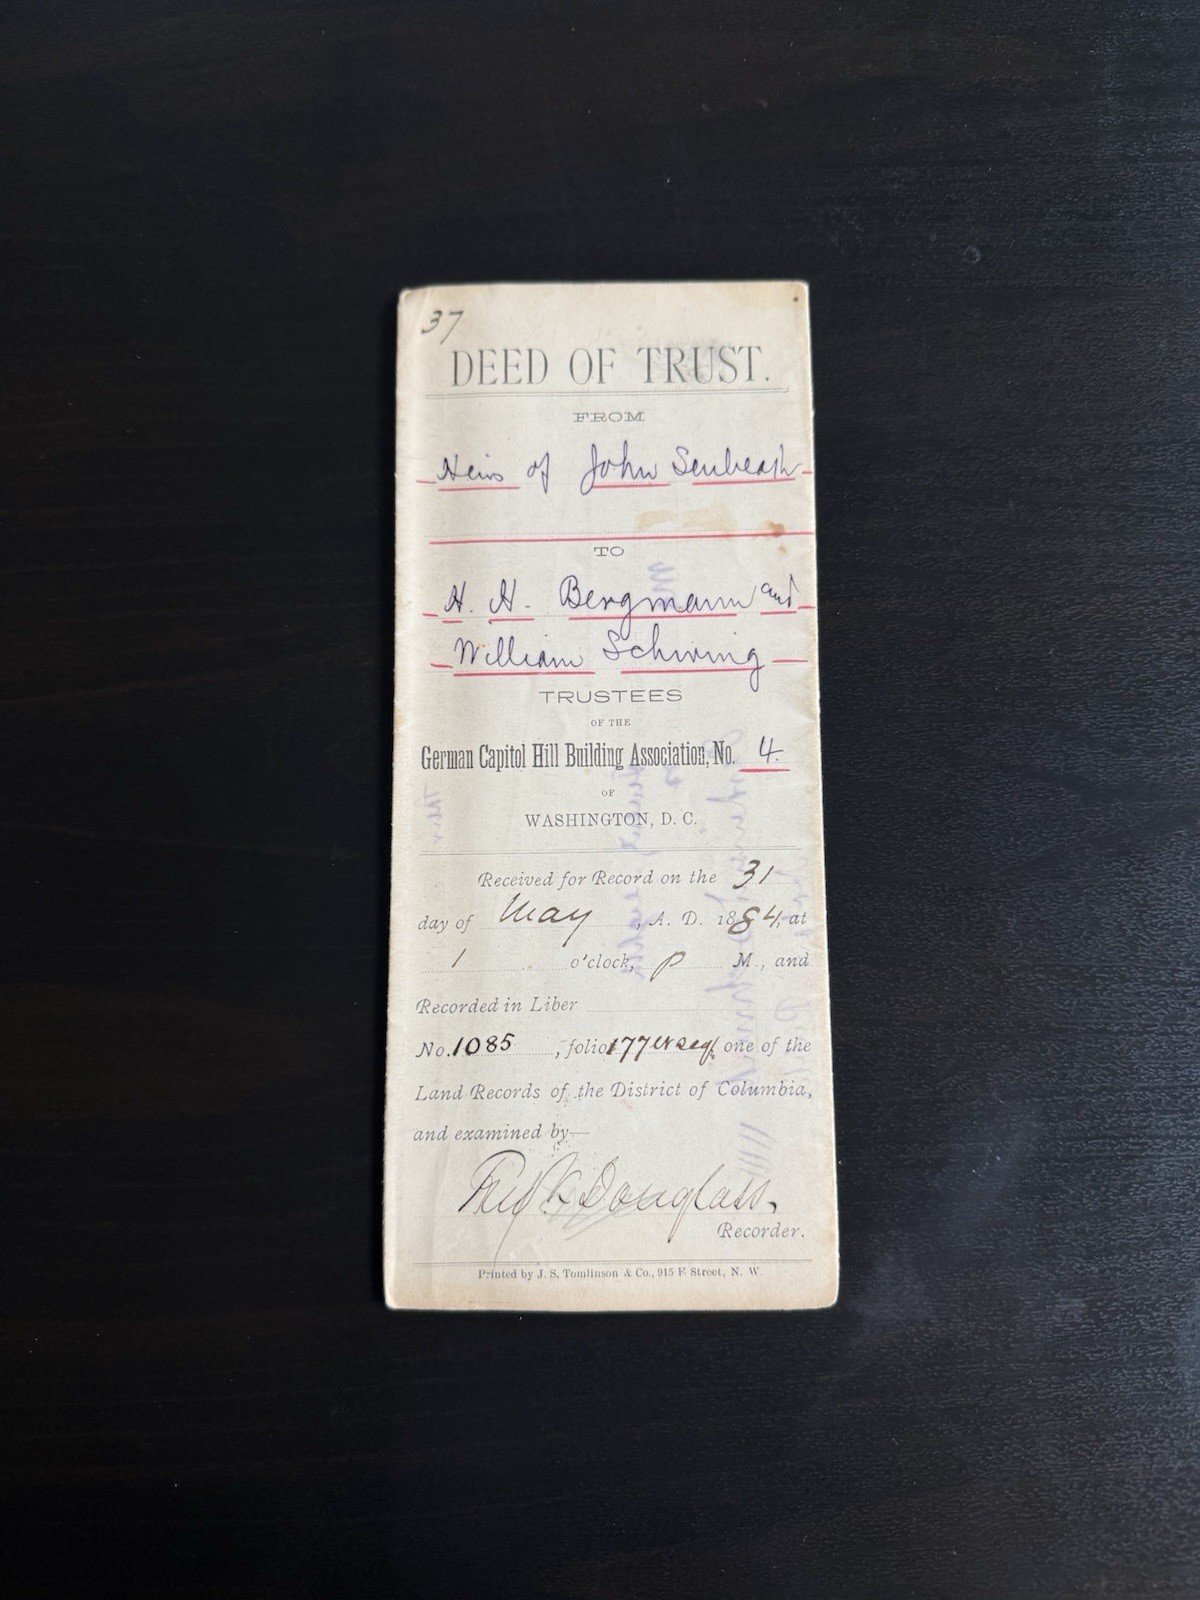 37
DEED OF TRUST.
FROM
Heirs of John
TO
H. H. Bergmann and
William Schwing
TRUSTEES
OF THE
German Capitol Hill Building Association, No. 4.
OF
WASHINGTON, D. C.
Received for Record on the 31
day of May, A. D. 1884, at
1 o'clock, P M., and
Recorded in Liber
No. 1085, folio 177 et seq. one of the
Land Records of the District of Columbia,
and examined by—
Fred K Douglass,
Recorder.
Printed by J. S. Tomlinson & Co., 915 F Street, N. W.